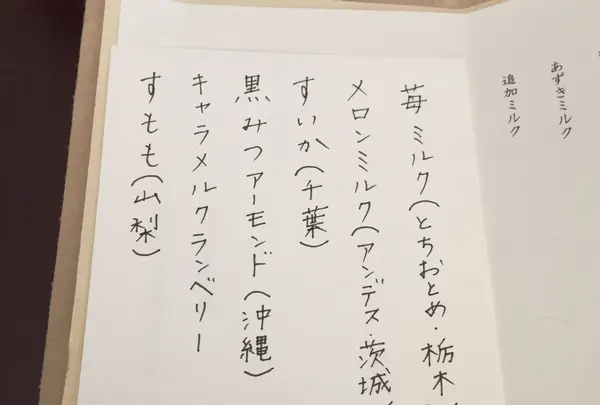 あずきミルク
追加ミルク
苺ミルク(とちおとめ・栃木
メロンミルク(アンデス・茨城
すいか(千葉)
黒みつアーモンド(沖縄)
キャラメルクランベリー
すもも(山梨)